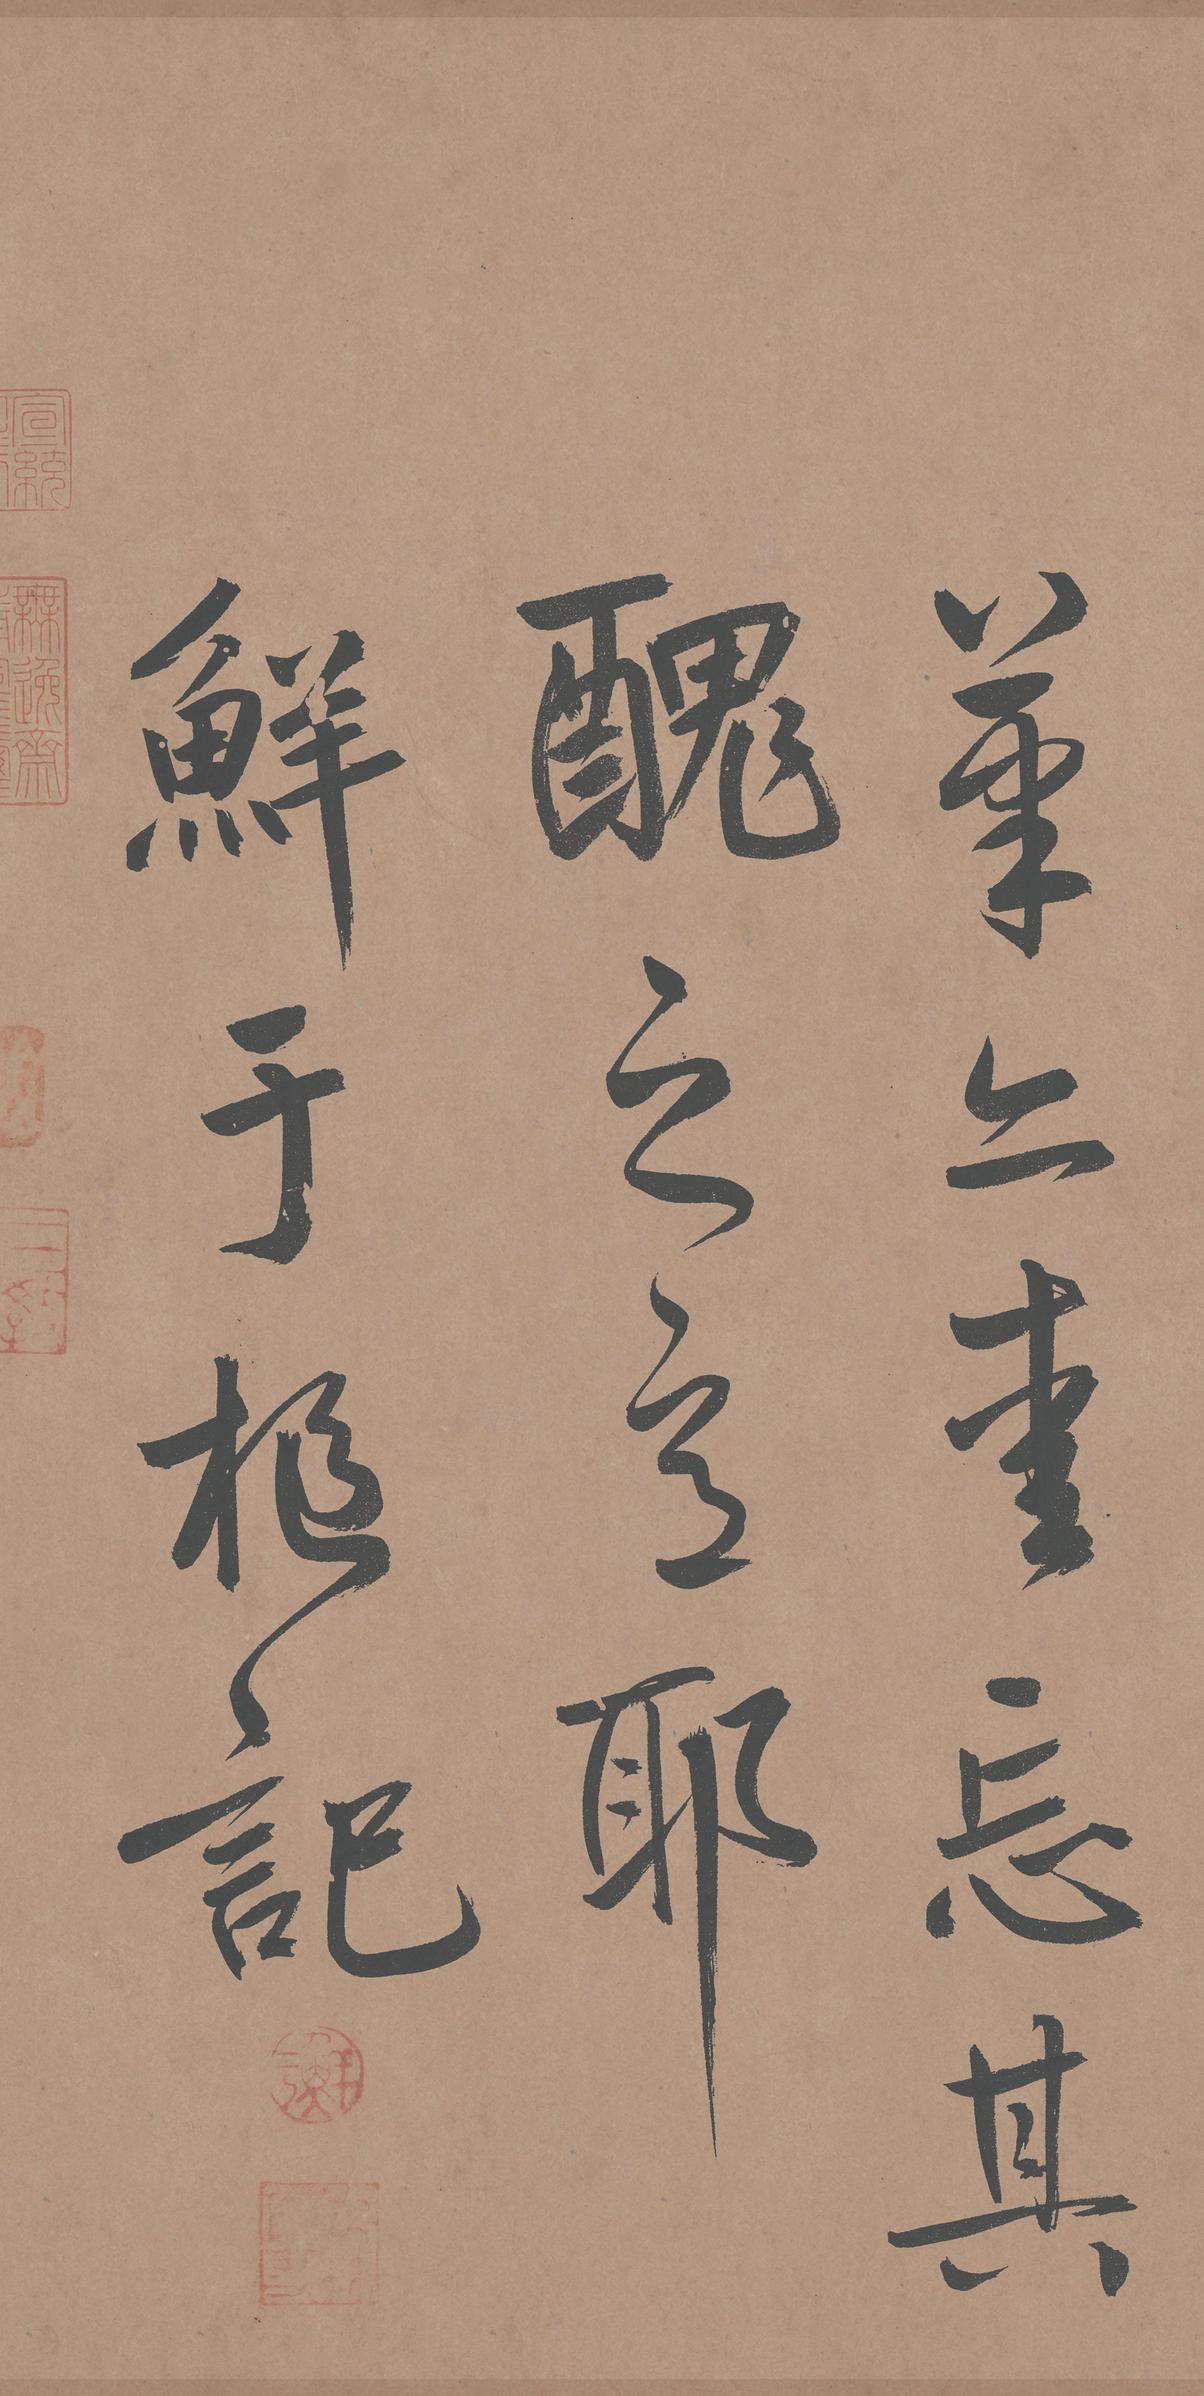 筆亦書忘其
醜之意耶
鮮于樞記